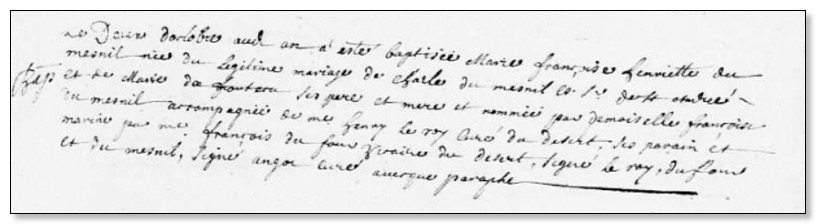 Le Deux doctobre audt an a esté baptisée Marie françoise henriette du
mesnil née du legitime mariage de Charle du mesnil es. sr de st andreé
Bap
et de Marie da ses pere et mere et nommée par demoiselle françoise
du mesnil accompagnée de me henry le roy curé du desert, ses parain et
maraine par me françois du four vicaire du desert, signé le roy, du four
et du mesnil, signé angot curé avecque paraphe